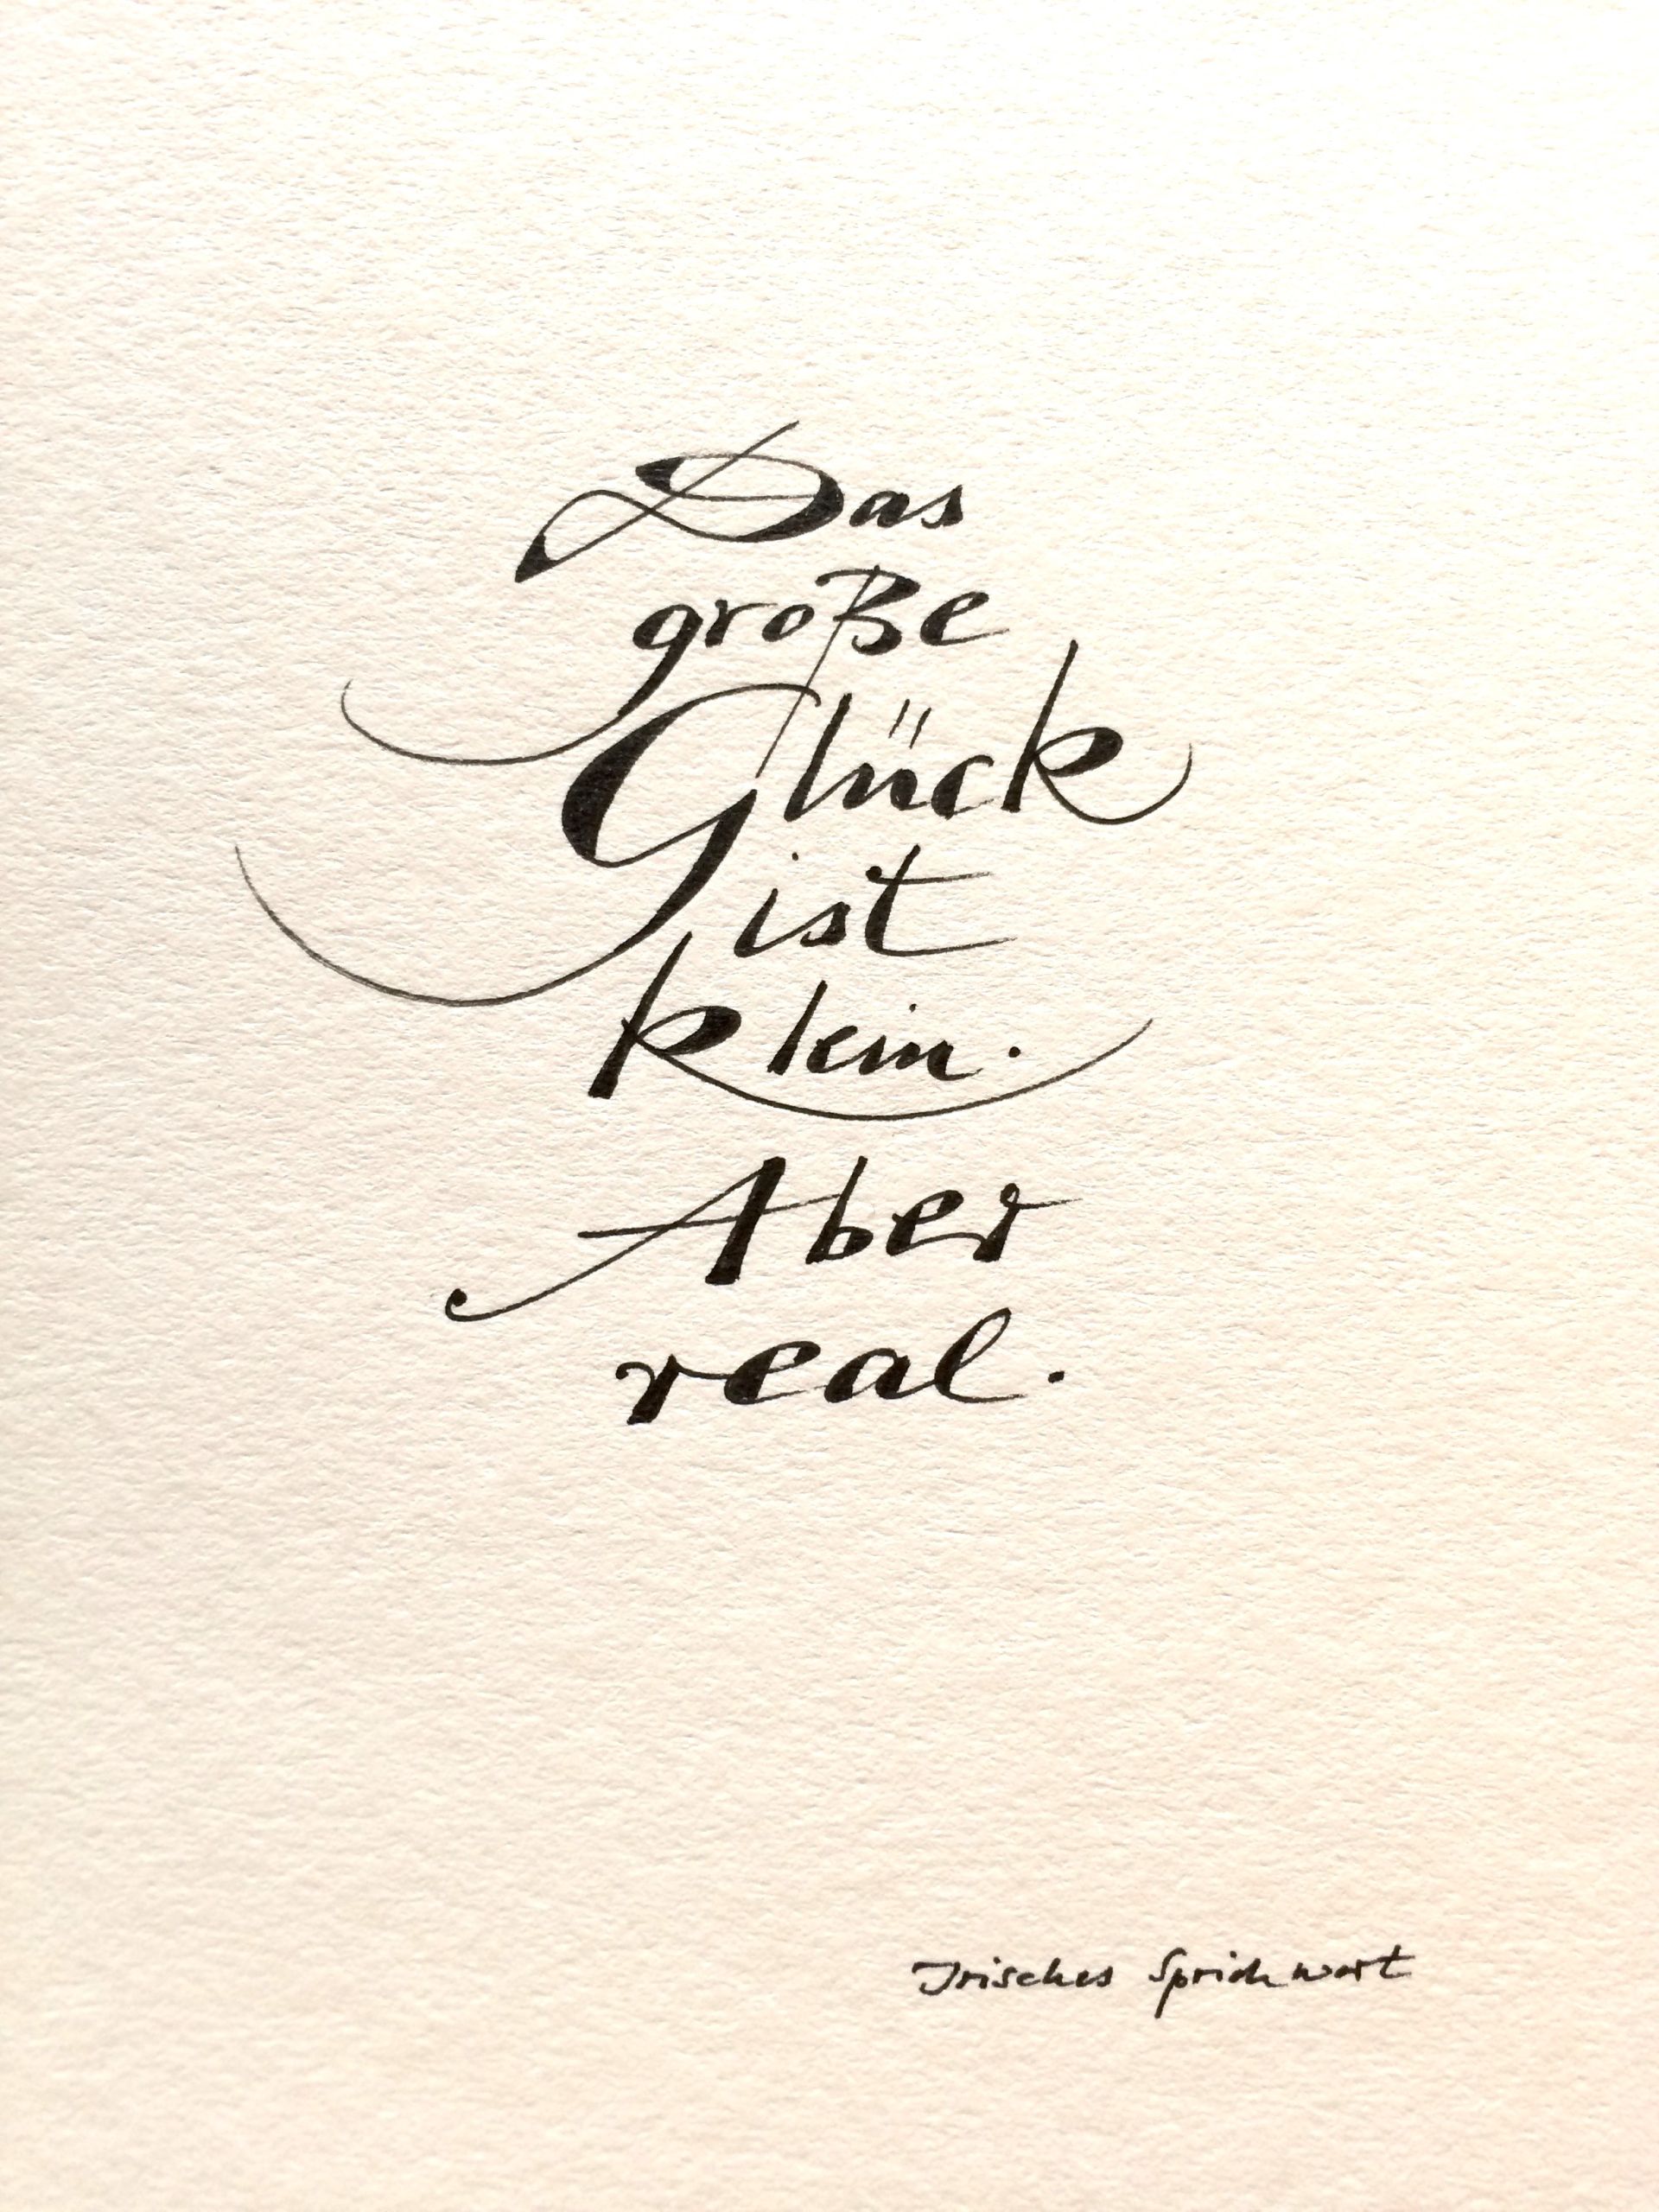 Das
große
Glück
ist
klein.
Aber
real.
Irisches Sprichwort